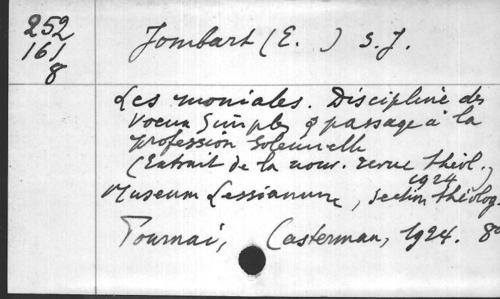 252
161
8
Jombart (E. ) S.J.
Les moniales. Discipline des
voeux simples & passage à la
profession solennelle
(Extrait de la nouv. revue théol.
1924)
Museum Lessianum, section théolog.
Tournai, Casterman, 1924. 8°